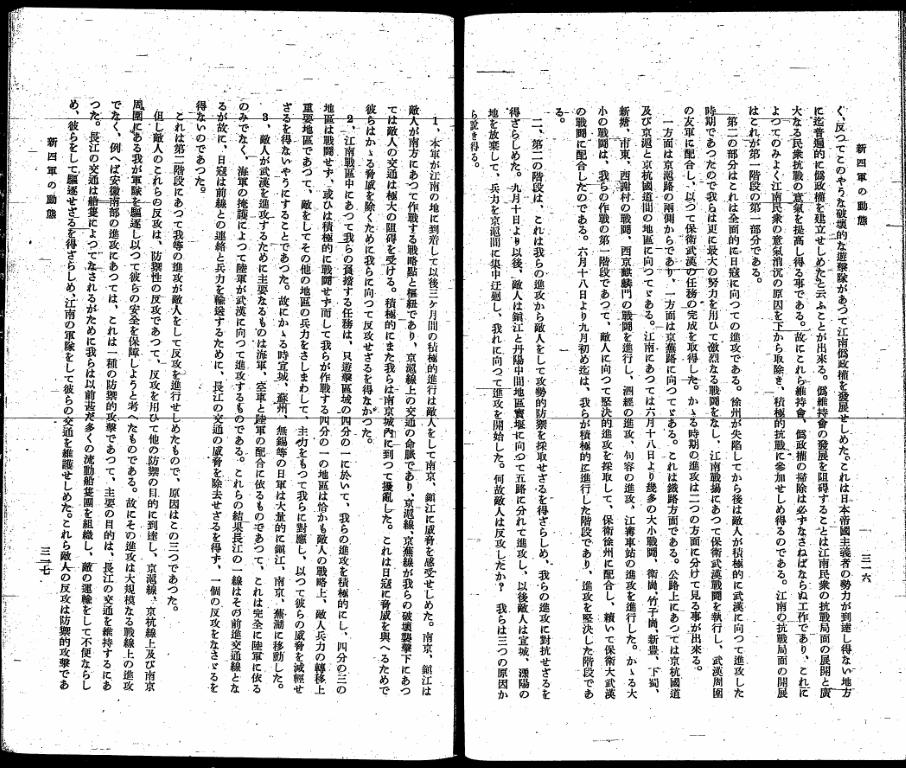 新四軍の動態
三一六
く、反つてこのやうな破壊的な遊撃隊があつて江南僞政權を發展せしめた。これは日本帝國主義者の勢力が到達し得ない地方
に迄普遍的に僞政權を建立せしめたと云ふことが出來る。僞維持會の發展を阻碍することは江南民衆の抗戰局面の展開と廣
大なる民衆抗戰の意氣を提高し得る事である。故にこれら維持會、僞政權の掃除は必ずなさねばならぬ工作であり、これに
よつてのみよく江南民衆の意氣消沉の原因を下から取除き、積極的抗戰に參加せしめ得るのである。江南の抗戰局面の開展
はこれが第一階段の第一部分である。
第二の部分はこれは全面的に日寇に向つての進攻である。徐州が失陷してから後は敵人が積極的に武漢に向つて進攻した
時期であつたので我らは更に最大の努力を用ひて激烈なる戰鬪をなし、江南戰場にあつて保衛武漢戰鬪を執行し、武漢周圍
の友軍に配合し、以つて保衛武漢の任務の完成を取得した。かゝる時期の進攻は二つの方面に分けて見る事が出來る。
一方面は京滬路の兩側からであり、一方面は京蕪路に向つてゞある。これは鐵路方面である。公路上にあつては京杭國道
及び京滬と京杭國道間の地區に向つてゞある。江南にあつては六月十八日より幾多の大小戰鬪、衛崗、竹子崗、新豊、下蜀、
新塘、市東、西謝村の戰鬪、西京麒麟門の戰鬪を進行し、泗經の進攻、句容の進攻、江寗車站の進攻を進行した。かゝる大
小の戰鬪は、我らの作戰の第一階段であつて、敵人に向つて堅決的進攻を採取して、保衛徐州に配合し、續いて保衛大武漢
の戰鬪に配合したのである。六月十八日より九月初め迄は、我らが積極的に進行した階段であり、進攻を堅決した階段であ
る。
二、第二の階段は、これは我らの進攻から敵人をして攻勢的防禦を採取せざるを得ざらしめ、我らの進攻に對抗せざるを
得ざらしめた。九月十日より以後、敵人は鎭江と丹陽中間地區寶堰に向つて五路に分れて進攻し、以後敵人は宣城、溧陽の
地を放棄して、兵力を京滬間に集中迂廻し、我れに向つて進攻を開始した。何故敵人は反攻したか？ 我らは三つの原因か
ら説き得る。
1、本軍が江南の地に到着して以後三ヶ月間の積極的進行は敵人をして南京、鎭江に威脅を感受せしめた。南京、鎭江は
敵人が南方にあつて作戰する戰略點と樞紐であり、京滬線上の交通の命脈であり、京滬線、京蕪線が我らの破壊襲撃下にあつ
ては敵人の交通は極大の阻碍を受ける。積極的にまた我らは南京城内に到つて擾亂した。これは日寇に脅威を與へるためで
彼らはかゝる脅威を除くために我らに向つて反攻せざるを得なかつた。
2、江南戰區中にあつて我らの負擔する任務は、只遊撃區城の四分の一に於いて、我らの進攻を積極的にし、四分の三の
地區は戰鬪せず、或ひは積極的に戰鬪せず而して我らが作戰する四分の一の地區は恰かも敵人の戰略上、敵人兵力の轉移上
重要地區であつて、敵をしてその他の地區の兵力をさしまわして、主力をもつて我らに對應し、以つて彼らの威脅を減輕せ
ざるを得ないやうにすることであつた。故にかゝる時宣城、蘇州、無錫等の日軍は大量的に鎭江、南京、蕪湖に移動した。
3、敵人が武漢を進攻するために主要なるものは海軍、空車と陸軍の配合に依るものであつて、これは完全に陸軍に依る
のみでなく、海軍の掩護によつて陸軍が武漢に向つて進攻するものである。これらの結果長江の一線はその前進交通線とな
るが故に、日寇は前線との連絡と兵力を輸送するために、長江の交通の威脅を除去せざるを得ず、一個の反攻をなさゞるを
得ないのであつた。
これは第二階段にあつて我等の進攻が敵人をして反攻を進行せしめたもので、原因はこの三つであつた。
但し敵人のこれらの反攻は、防禦性の反攻であつて、反攻を用ひて他の防禦の目的に到達し、京滬線、京杭線上及び南京
周圍にある我が軍隊を驅逐し以つて彼らの安全を保障しようと考へたものである。故にその進攻は大規模なる戰線上の進攻
でなく、例へば安徽南部の進攻にあつては、これは一種の防禦的攻撃であつて、主要の目的は、長江の交通を維持するにあ
つた。長江の交通は船隻によつてなされるがために我らは以前甚だ多くの流動船隻團を組織し、敵の運輸をして不便ならし
め、彼らをして驅逐せざるを得ざらしめ、江南の軍隊をして彼らの交通を維護せしめた。これら敵人の反攻は防禦的攻撃であ
新四軍の動態
三一七